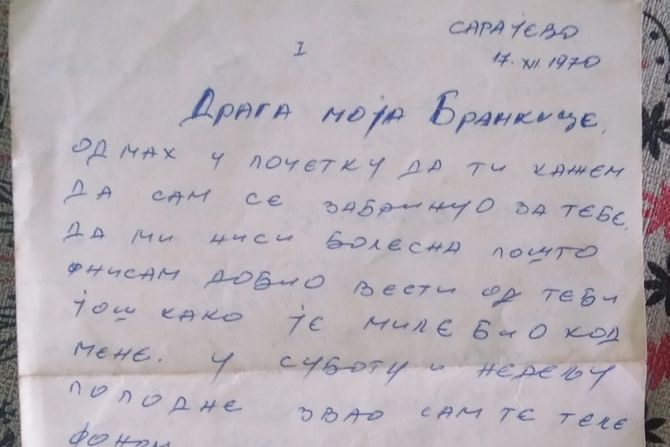 I
САРАЈЕВО
17. XII. 1970
ДРАГА МОЈА БРАНКИЦЕ,
ОДМАХ У ПОЧЕТКУ ДА ТИ КАЖЕМ
ДА САМ СЕ ЗАБРИНУО ЗА ТЕБЕ.
ДА МИ НИСИ БОЛЕСНА ПОШТО
НИСАМ ДОБИО ВЕСТИ ОД ТЕБИ
ЈОШ КАКО ЈЕ МИЛЕ БИО КОД
МЕНЕ. У СУБОТУ И НЕДЕЉУ
ПОПОДНЕ ЗВАО САМ ТЕ ТЕЛЕ
ФОНОМ